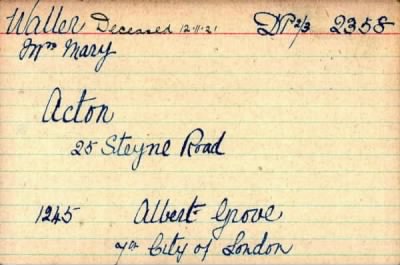 Waller Deceased 12.11.21 DP2/3 2358
Mrs Mary
Acton
25 Steyne Road
1245 Albert Grove
7th City of London